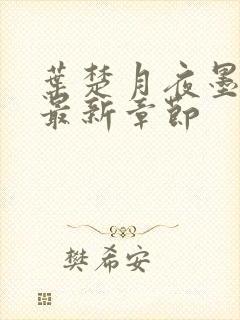 葉楚月夜墨
最新章節
樊希安